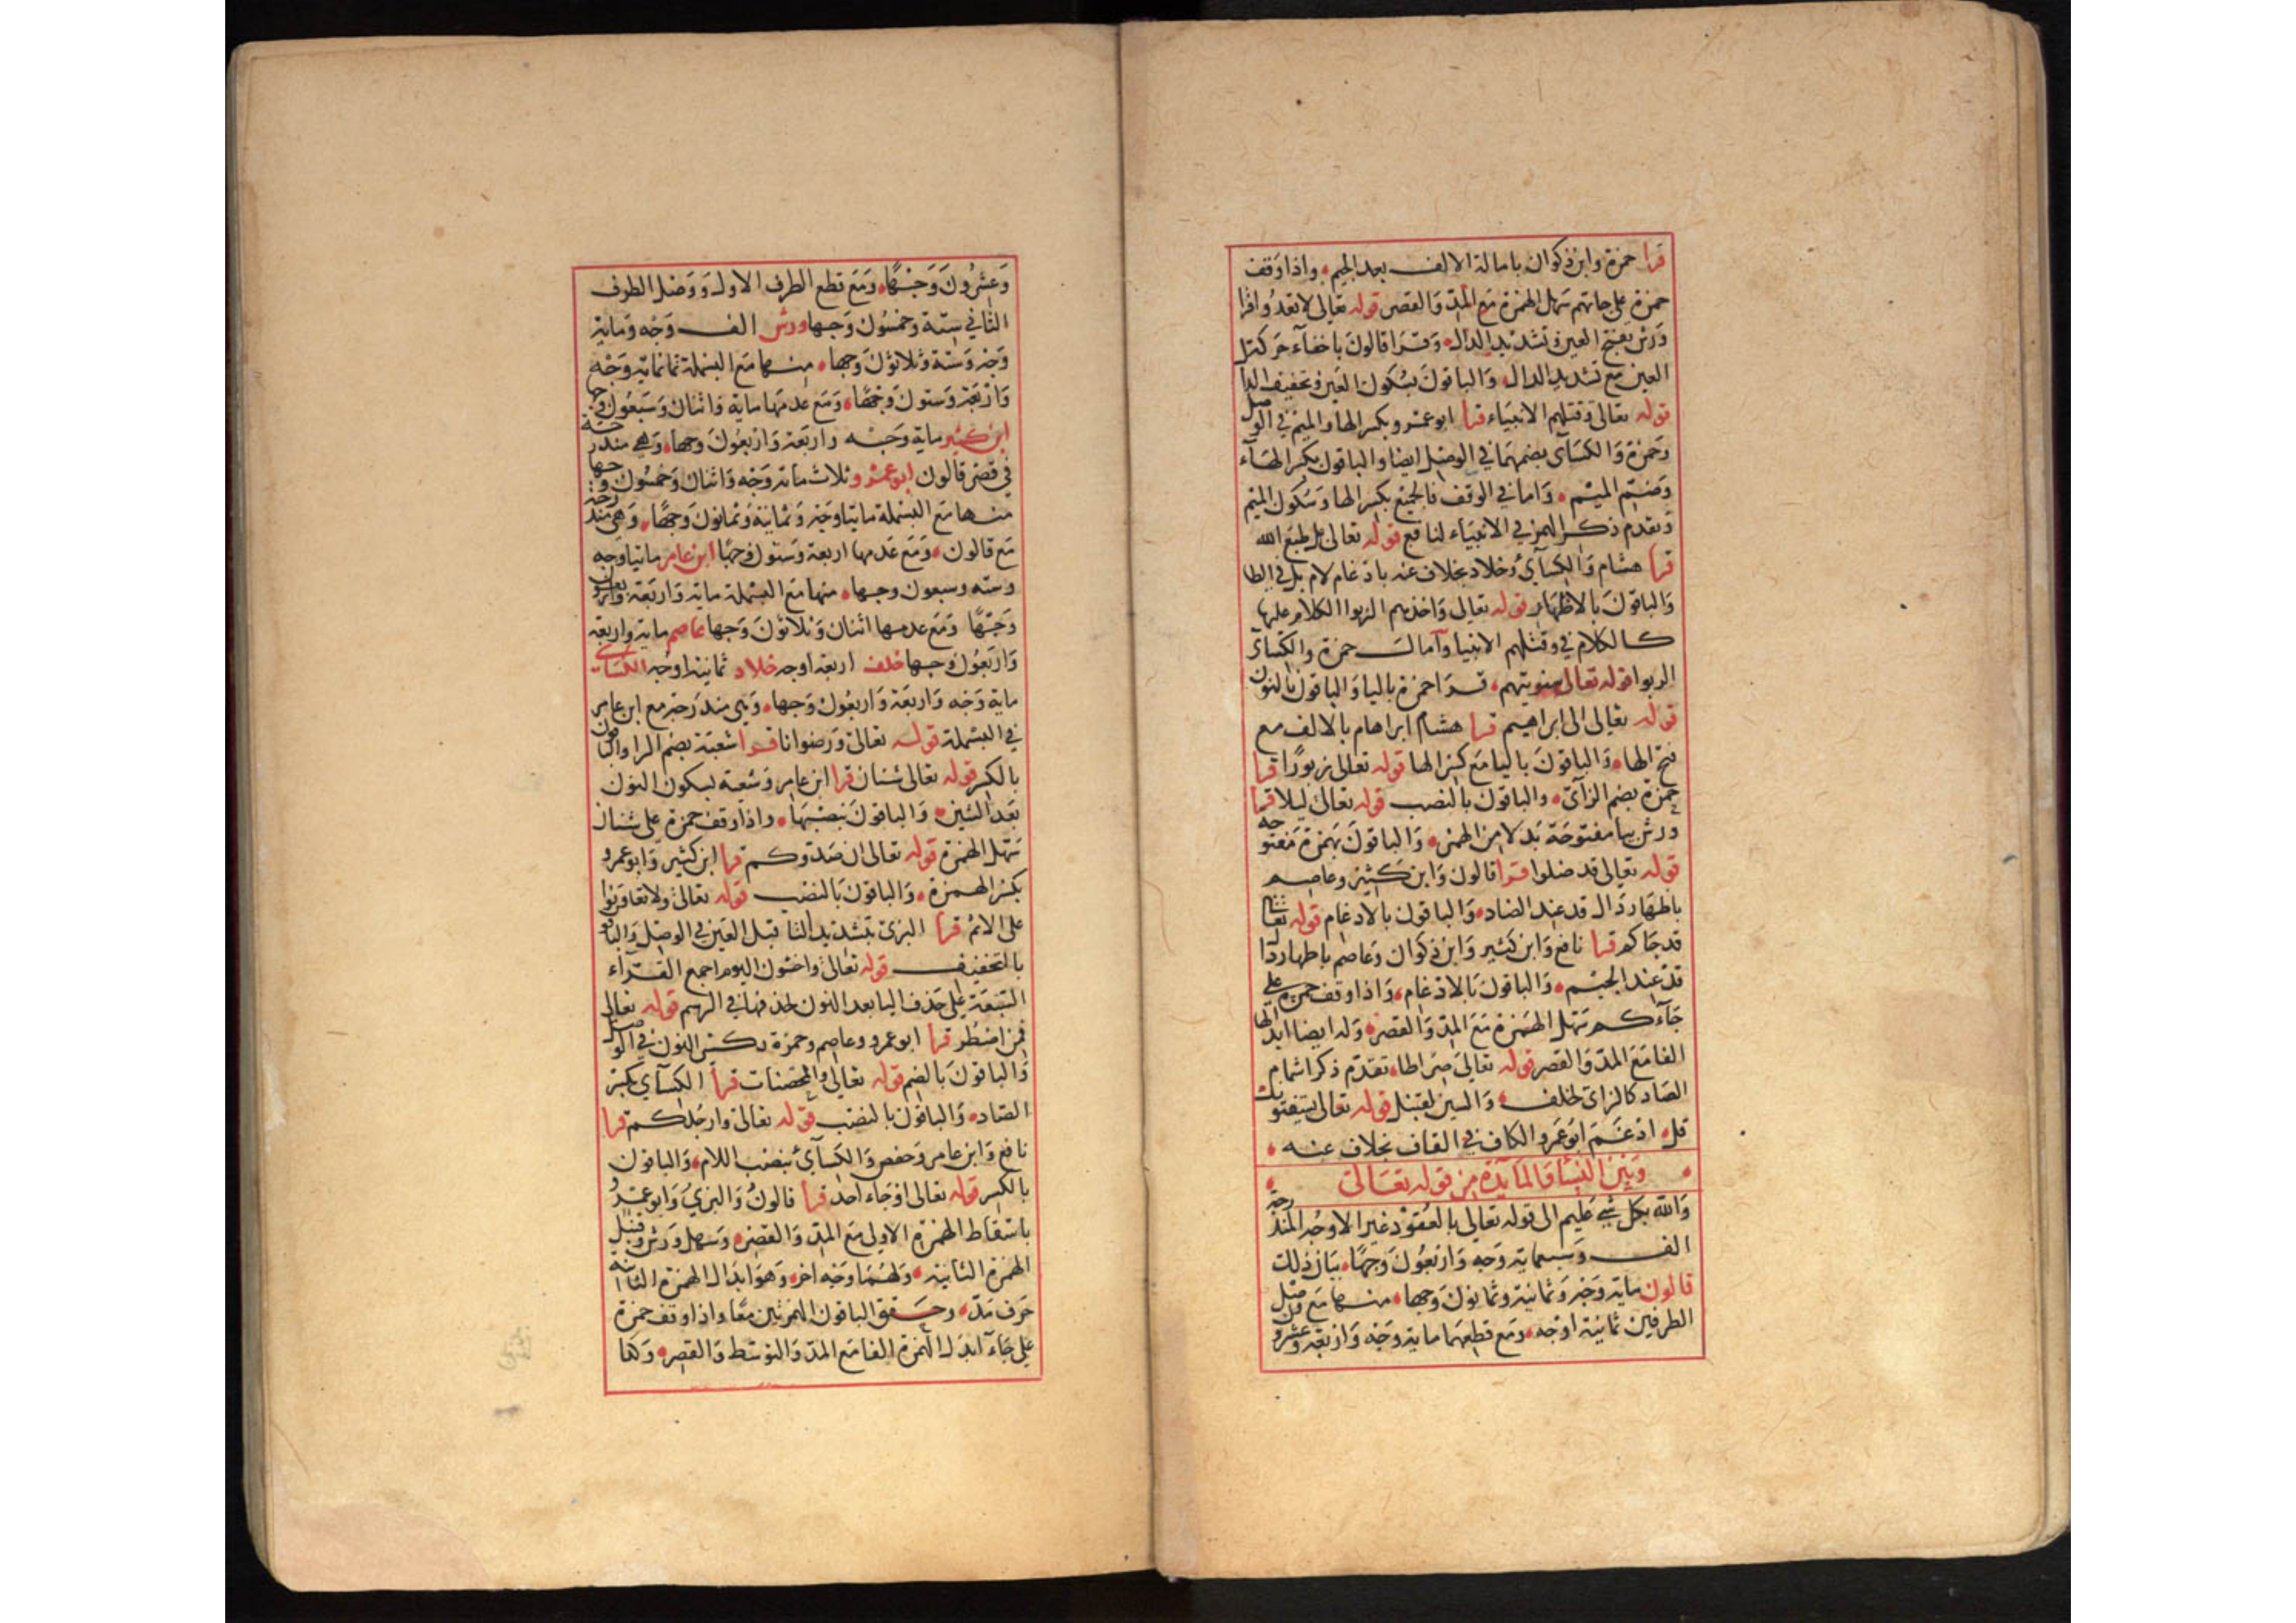 قرا حمزة وابن ذكوان بامالة الالف بعد الجيم واذا وقف
حمزة على جاتهم سهل الهمزة مع المد والقصر قوله تعالى لا تعدوا قرا
ورش بفتح العين وتشديد الدال وقرا قالون باخفاء حركة
العين مع تشديد الدال والباقون بسكون العين وتخفيف الدال
قوله تعالى وقتلهم الانبياء قرا ابو عمرو بكسر الها والميم في الوصل
وحمزة والكسآى بضمهما في الوصل ايضا والباقون بكسر الهاء
وضم الميم واما في الوقف فالجميع بكسر الها وسكون الميم
وتقدم ذكر الهمز في الانبياء لنافع قوله تعالى بل طبع الله
قرا هشام والكسآئ وخلاد بخلاف عنه بادغام لام بل في الطا
والباقون بالاظهار قوله تعالى واخذهم الربوا الكلام عليها
كالكلام في وقتلهم الانبيا وامال حمزة والكسآى
الربوا قوله تعالى سنوتيهم قرا حمزة باليا والباقون بالنون
قوله تعالى الى ابراهيم قرا هشام ابراهام بالالف مع
فتح الها والباقون باليا مع كسر الها قوله تعالى زبورًا قرا
حمزة بضم الزآى والباقون بالنصب قوله تعالى ليلا قرا
ورش بيا مفتوحة بدلا من الهمز والباقون بهمزة مفتوحه
قوله تعالى قد ضلوا قرا قالون وابن كثير وعاصم
باظهار دال قد عند الضاد والباقون بالادغام قوله تعالى
قد جاكم قرا نافع وابن كثير وابن ذكوان وعاصم باظهار دال
قد عند الجيم والباقون بالادغام واذا وقف حمزة على
جآءكم سهل الهمزة مع المد والقصر وله ايضا ابدالها
الفا مع المد والقصر قوله تعالى صراطا تقدم ذكر اشمام
الصاد كالزاى لخلف والسين لقنبل قوله تعالى يستفتونك
قل ادغم ابو عمرو الكاف في القاف بخلاف عنه
وبين النسا والمآيدة من قوله تعالى
والله بكل شئ عليم الى قوله تعالى بالعقود غير الاوجه المندرجة
الف وسبعماية وجه واربعون وجهًا بيان ذلك
قالون ماية وجه وثمانية وثمانون وجها منها مع وصل
الطرفين ثمانية اوجه ومع قطعهما ماية وجه واربعة وعشرون
وعشرون وجهًا ومع قطع الطرف الاول ووصل الطرف
الثاني ستة وخمسون وجها ورش الف وجه وماية
وجه وستة وثلاثون وجها منها مع البسملة ثمانماية وجه
واربعة وستون وجهًا ومع عدمها ماية واثنان وسبعون وجها
ابن كثير ماية وجه واربعة واربعون وجها وهي مندرجة
في قصر قالون ابو عمرو ثلاث ماية وجه واثنان وخمسون وجها
منها مع البسملة مايتا وجه وثمانية وثمانون وجهًا وهي مندرجة
مع قالون ومع عدمها اربعة وستون وجهًا ابن عامر مايتا وجه
وسته وسبعون وجها منها مع البسملة ماية واربعة واربعون
وجهًا ومع عدمها اثنان وثلاثون وجها عاصم ماية واربعة
واربعون وجها خلف اربعة اوجه خلاد ثمانية اوجه الكساى
ماية وجه واربعة واربعون وجها وهي مندرجة مع ابن عامر
في البسملة قوله تعالى ورضوانا قرا شعبة بضم الرا والباقون
بالكسر قوله تعالى شنان قرا ابن عامر وشعبة بسكون النون
بعد الشين والباقون بنصبها واذا وقف حمزة على شنان
سهل الهمزة قوله تعالى ان صدوكم قرا ابن كثير وابو عمرو
بكسر الهمزة والباقون بالنصب قوله تعالى ولا تعاونوا
على الاثم قرا البزى بتشديد التا قبل العين في الوصل والباقون
بالتخفيف قوله تعالى واخشون اليوم اجمع القراء
السبعة على حذف اليا بعد النون لحذفها في الرسم قوله تعالى
فمن اضطر قرا ابو عمرو وعاصم وحمزة بكسر النون في الوصل
والباقون بالضم قوله تعالى والمحصنات قرا الكسآي بكسر
الصاد والباقون بالنصب قوله تعالى وارجلكم قرا
نافع وابن عامر وحفص والكسآئ بنصب اللام والباقون
بالكسر قوله تعالى او جاء احد قرا قالون والبزي وابو عمرو
باسقاط الهمزة الاولى مع المد والقصر وسهل ورش وقنبل
الهمزة الثانية ولهما وجه اخر وهو ابدال الهمزة الثانية
حرف مد وحقق الباقون الهمزتين معًا واذا وقف حمزة
على جآء ابدل الهمزة الفا مع المد والتوسط والقصر وكذا